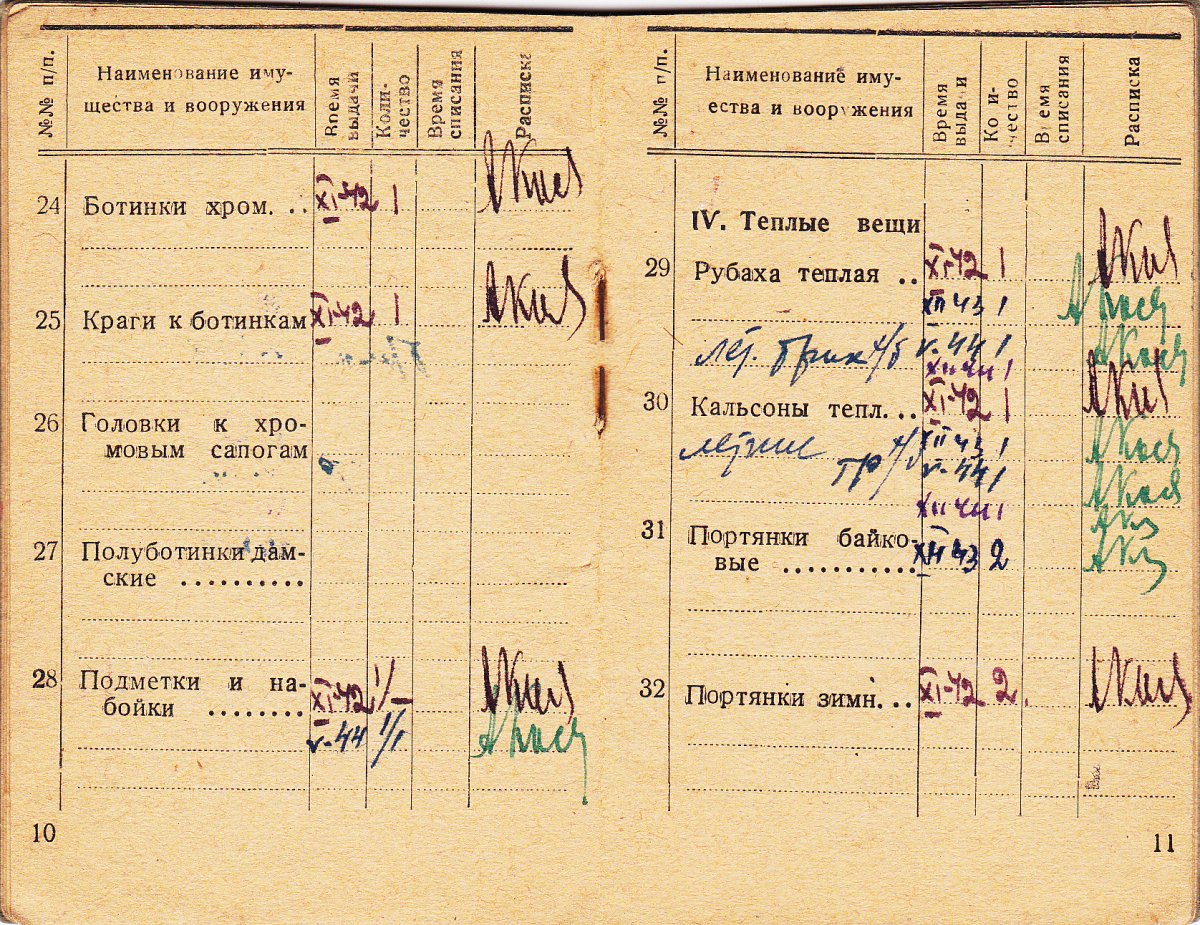 №№ п/п.
Наименование иму-
щества и вооружения
Время
выдачи
Коли-
чество
Время
списания
Расписка
24 Ботинки хром. .. XI-42 1
25 Краги к ботинкам XI-42 1
26 Головки к хро-
мовым сапогам
27 Полуботинки дам-
ские ..........
28 Подметки и на-
бойки ........ XI-42 1/-
V-44 1/1
10
№№ п/п.
Наименование иму-
ества и вооружения
Время
выда и
Ко и-
чество
В емя
списания
Расписка
IV. Теплые вещи
29 Рубаха теплая .. XI-42 1
XII 43 1
лет. V-44 1
30 Кальсоны тепл... XI-42 1
летние XII 43 1
V-44 1
31 Портянки байко-
вые ........... XII 43 2
32 Портянки зимн. .. XI-42 2.
11